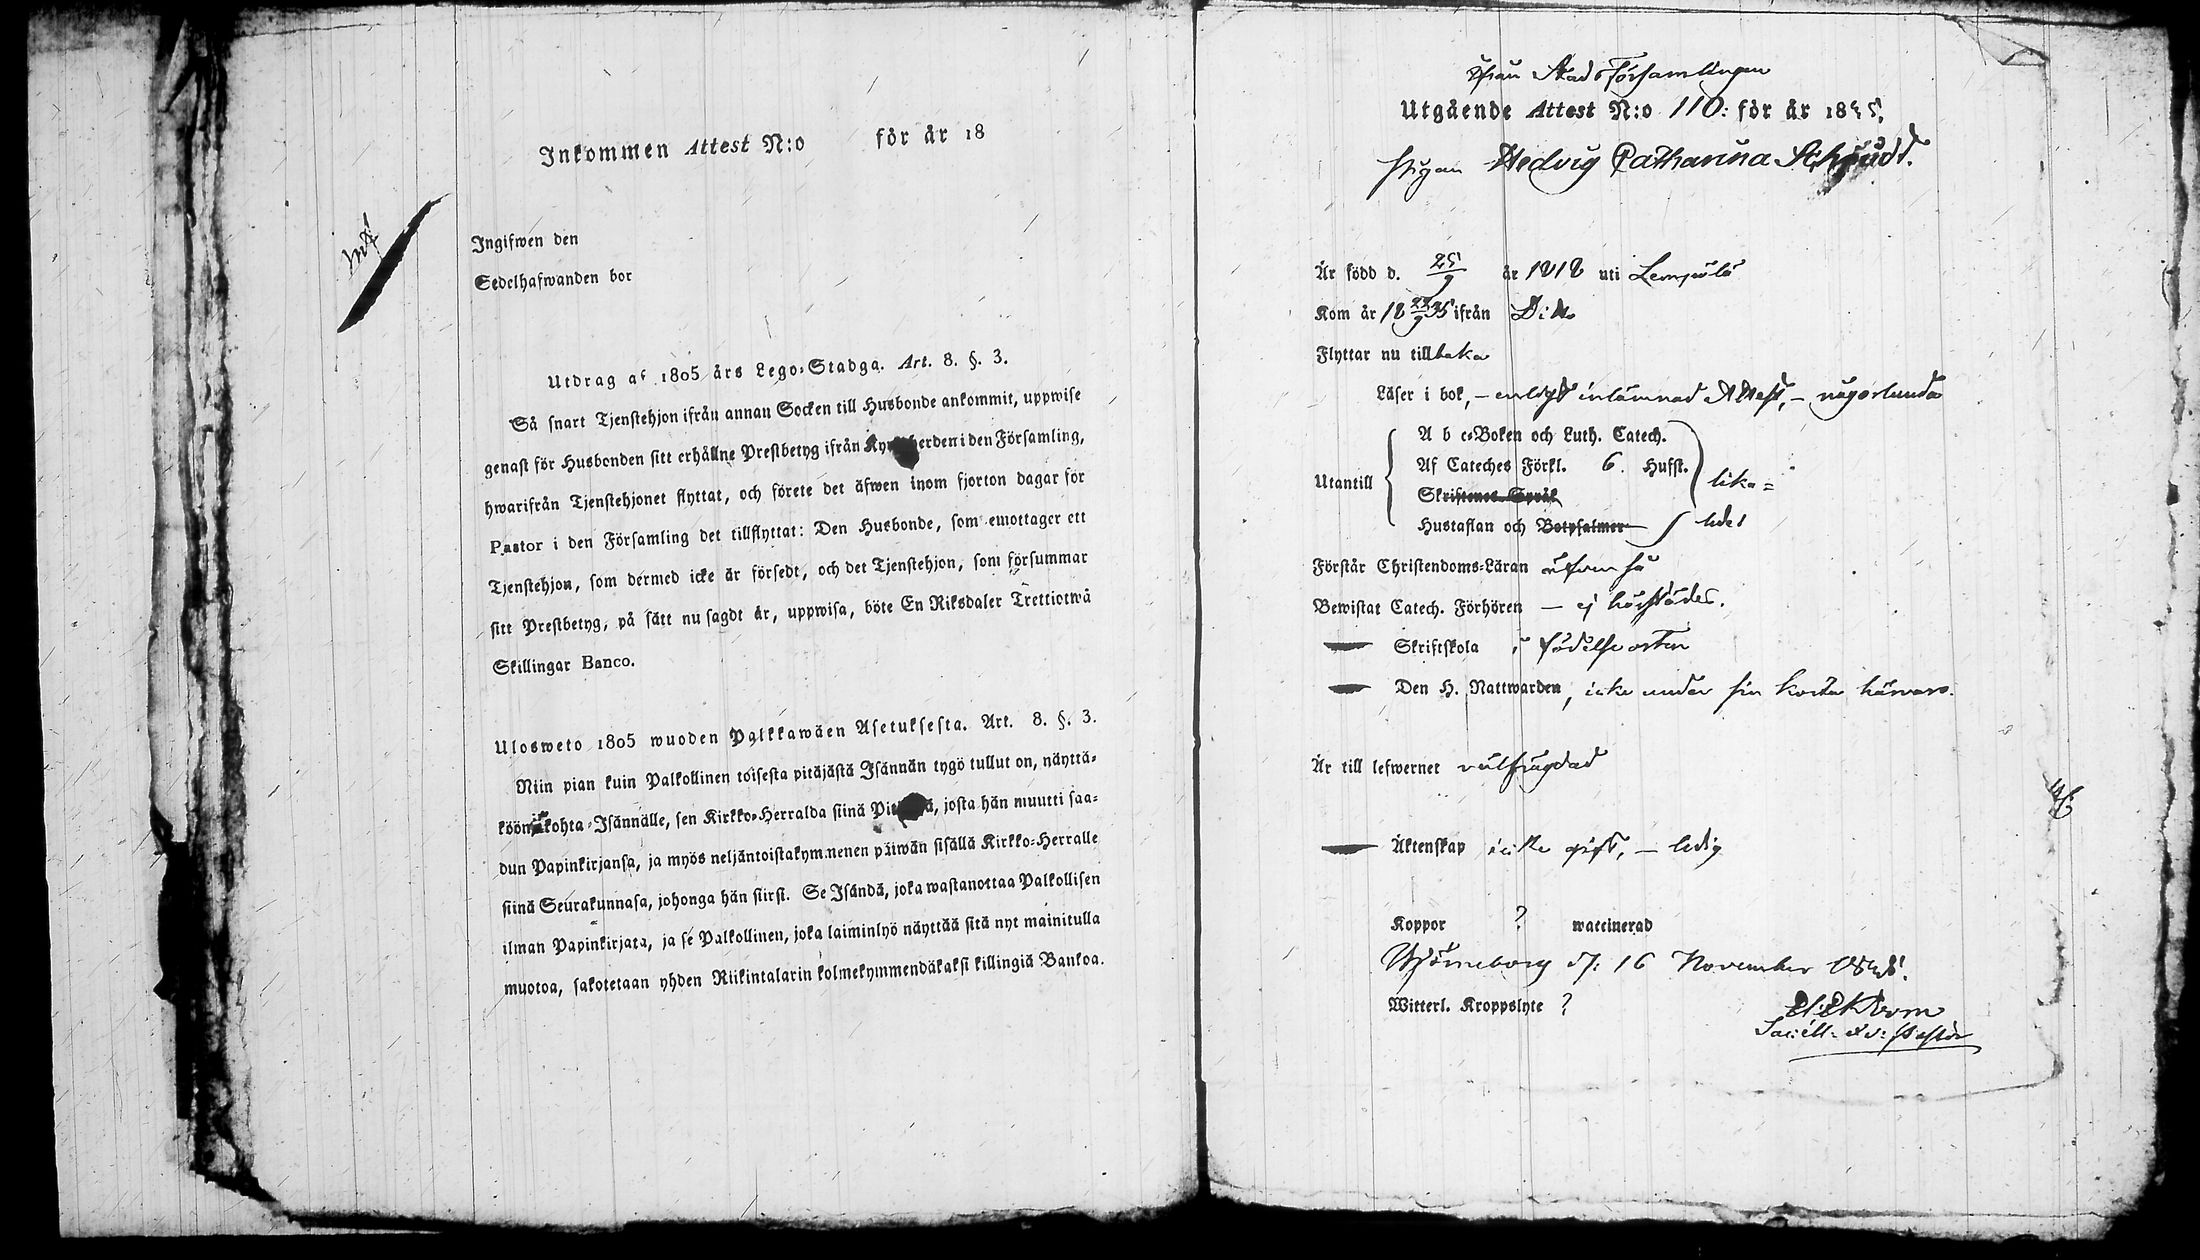 Inkommen Attest N:o för år 18
Ingifwen den
Sedelhafwanden bor
Utdrag af 1805 års Lego-Stadga. Art. 8. §. 3.
Så snart Tjenstehjon ifrån annan Socken till Husbonde ankommit, uppwise
genast för Husbonden sitt erhållne Prestbetyg ifrån Ky erden i den Församling,
hwarifrån Tjenstehjonet flyttat, och förete det äfwen inom fjorton dagar för
Pastor i den Församling det tillflyttat: Den Husbonde, som emottager ett
Tjenstehjon, som dermed icke är försedt, och det Tjenstehjon, som försummar
sitt Prestbetyg, på sätt nu sagdt är, uppwisa, böte En Riksdaler Trettiotwå
Skillingar Banco.
Ulosweto 1805 wuoden Palkkawäen Asetuksesta. Art. 8. §. 3.
Niin pian kuin Palkollinen toisesta pitäjästä Isännän tygö tullut on, näyttä-
köön kohta Isännälle, sen Kirkko-Herralda siinä Pit ä, josta hän muutti saa-
dun Papinkirjansa, ja myös neljäntoistakymmenen päiwän sisällä Kirkko-Herralle
siinä Seurakunnasa, johonga hän siirsi. Se Isändä, joka wastanottaa Palkollisen
ilman Papinkirjata, ja se Palkollinen, joka laiminlyö näyttää sitä nyt mainitulla
muotoa, sakotetaan yhden Riikintalarin kolmekymmendäkaksi killingiä Bankoa.
ifrån Stads Församlingen
Utgående Attest N:o 110: för år 1835.
Pigan Hedvig Catharina
Är född d. 25/9 år 1818 uti Lempälä
Kom år 18 22/9 35 ifrån Dito
Flyttar nu tillbaka
Läser i bok, – enligt inlämnad Attest, – någorlunda
A b c-Boken och Luth. Catech.
Af Cateches Förkl. 6. Hufst.
Utantill lika =
Skriftenes Språk
Hustaflan och Botpsalmer ledes
Förstår Christendoms-Läran äfven så
Bewistat Catech. Förhören – ej härstädes.
— Skriftskola i födelseorten
— Den H. Nattwarden, icke under sin korta härvaro.
Är till lefwernet välfrägdad
— Äktenskap icke gift, – ledig
Koppor ? waccinerad
Björneborg d: 16 November 1835.
Witterl. Kroppslyte ?
Sacell: v: Pastor